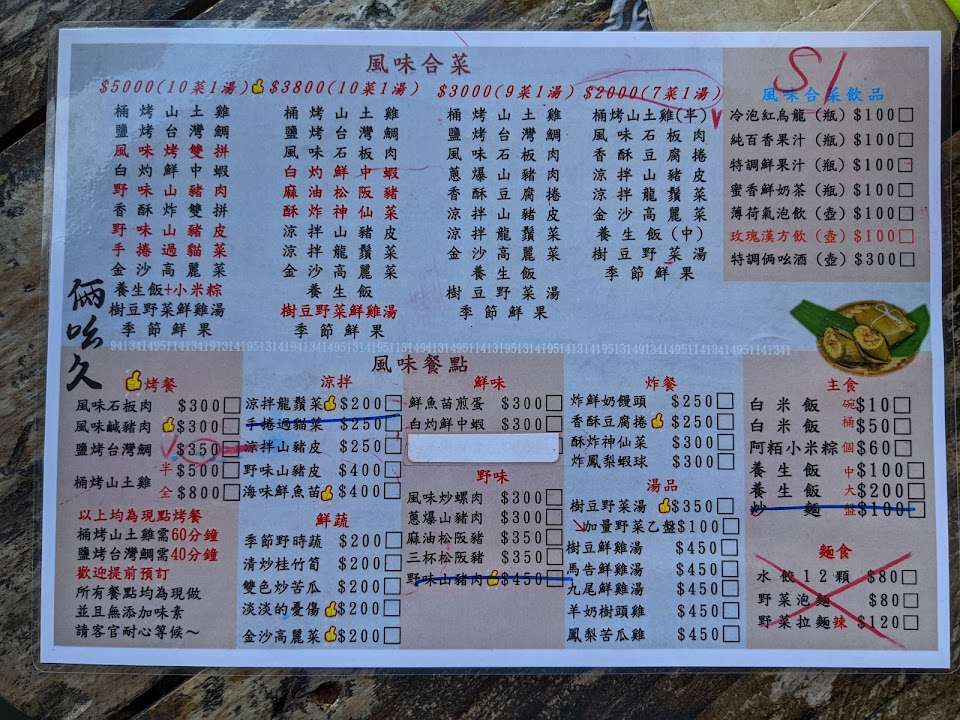 風味合菜
$5000(10菜1湯)
桶烤山土雞
鹽烤台灣鯛
風味烤雙拼
白灼鮮中蝦
野味山豬肉
香酥炸雙拼
野味山豬皮
手捲過貓菜
金沙高麗菜
養生飯+小米粽
樹豆野菜鮮雞湯
季節鮮果
$3800(10菜1湯)
桶烤山土雞
鹽烤台灣鯛
風味石板肉
白灼鮮中蝦
麻油松阪豬
酥炸神仙菜
涼拌山豬皮
涼拌龍鬚菜
金沙高麗菜
養生飯
樹豆野菜鮮雞湯
季節鮮果
$3000(9菜1湯)
桶烤山土雞
鹽烤台灣鯛
風味石板肉
蔥爆山豬肉
香酥豆腐捲
涼拌山豬皮
涼拌龍鬚菜
金沙高麗菜
養生飯
樹豆野菜湯
季節鮮果
$2000(7菜1湯)
桶烤山土雞(半)
風味石板肉
香酥豆腐捲
涼拌山豬皮
涼拌龍鬚菜
金沙高麗菜
養生飯(中)
樹豆野菜湯
季節鮮果
S1
風味合菜飲品
冷泡紅烏龍(瓶)$100
純百香果汁(瓶)$100
特調鮮果汁(瓶)$100
蜜香鮮奶茶(瓶)$100
薄荷氣泡飲(壺)$100
玫瑰漢方飲(壺)$100
特調倆吆酒(壺)$300
倆吆久
風味餐點
烤餐
風味石板肉 $300
風味鹹豬肉 $300
鹽烤台灣鯛 $350
桶烤山土雞 半 $500
全 $800
以上均為現點烤餐
桶烤山土雞需60分鐘
鹽烤台灣鯛需40分鐘
歡迎提前預訂
所有餐點均為現做
並且無添加味素
請客官耐心等候～
涼拌
涼拌龍鬚菜 $200
手捲過貓菜 $250
涼拌山豬皮 $250
野味山豬皮 $400
海味鮮魚苗 $400
鮮蔬
季節野時蔬 $200
清炒桂竹筍 $200
雙色炒苦瓜 $200
淡淡的憂傷 $200
金沙高麗菜 $200
鮮味
鮮魚苗煎蛋 $300
白灼鮮中蝦 $300
野味
風味炒螺肉 $300
蔥爆山豬肉 $300
麻油松阪豬 $350
三杯松阪豬 $350
野味山豬肉 $450
炸餐
炸鮮奶饅頭 $250
香酥豆腐捲 $250
酥炸神仙菜 $300
炸鳳梨蝦球 $300
湯品
樹豆野菜湯 $350
加量野菜乙盤$100
樹豆鮮雞湯 $450
馬告鮮雞湯 $450
九尾鮮雞湯 $450
羊奶樹頭雞 $450
鳳梨苦瓜雞 $450
主食
白米飯 碗$10
白米飯 桶$50
阿粨小米粽 個$60
養生飯 中$100
養生飯 大$200
炒麵 盤$100
麵食
水餃12顆 $80
野菜泡麵 $80
野菜拉麵辣 $120